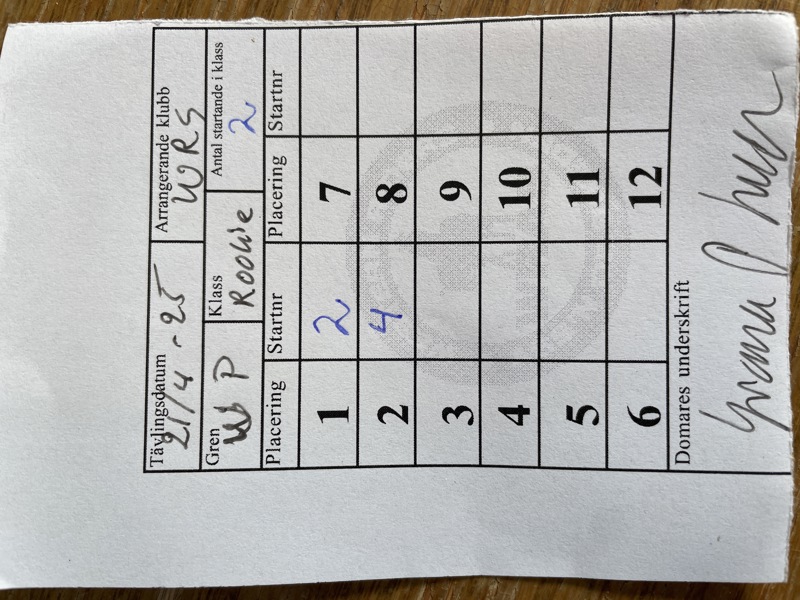 Tävlingsdatum Arrangerande klubb
21/4 - 25 WRS
Gren Klass Antal startande i klass
WP Rookie 2
Placering Startnr Placering Startnr
1 2 7
2 4 8
3 9
4 10
5 11
6 12
Domares underskrift